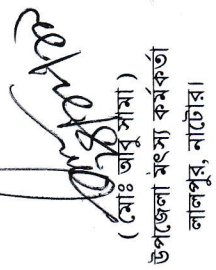 ( মোঃ আবু সামা )
উপজেলা মৎস্য কর্মকর্তা
লালপুর, নাটোর।